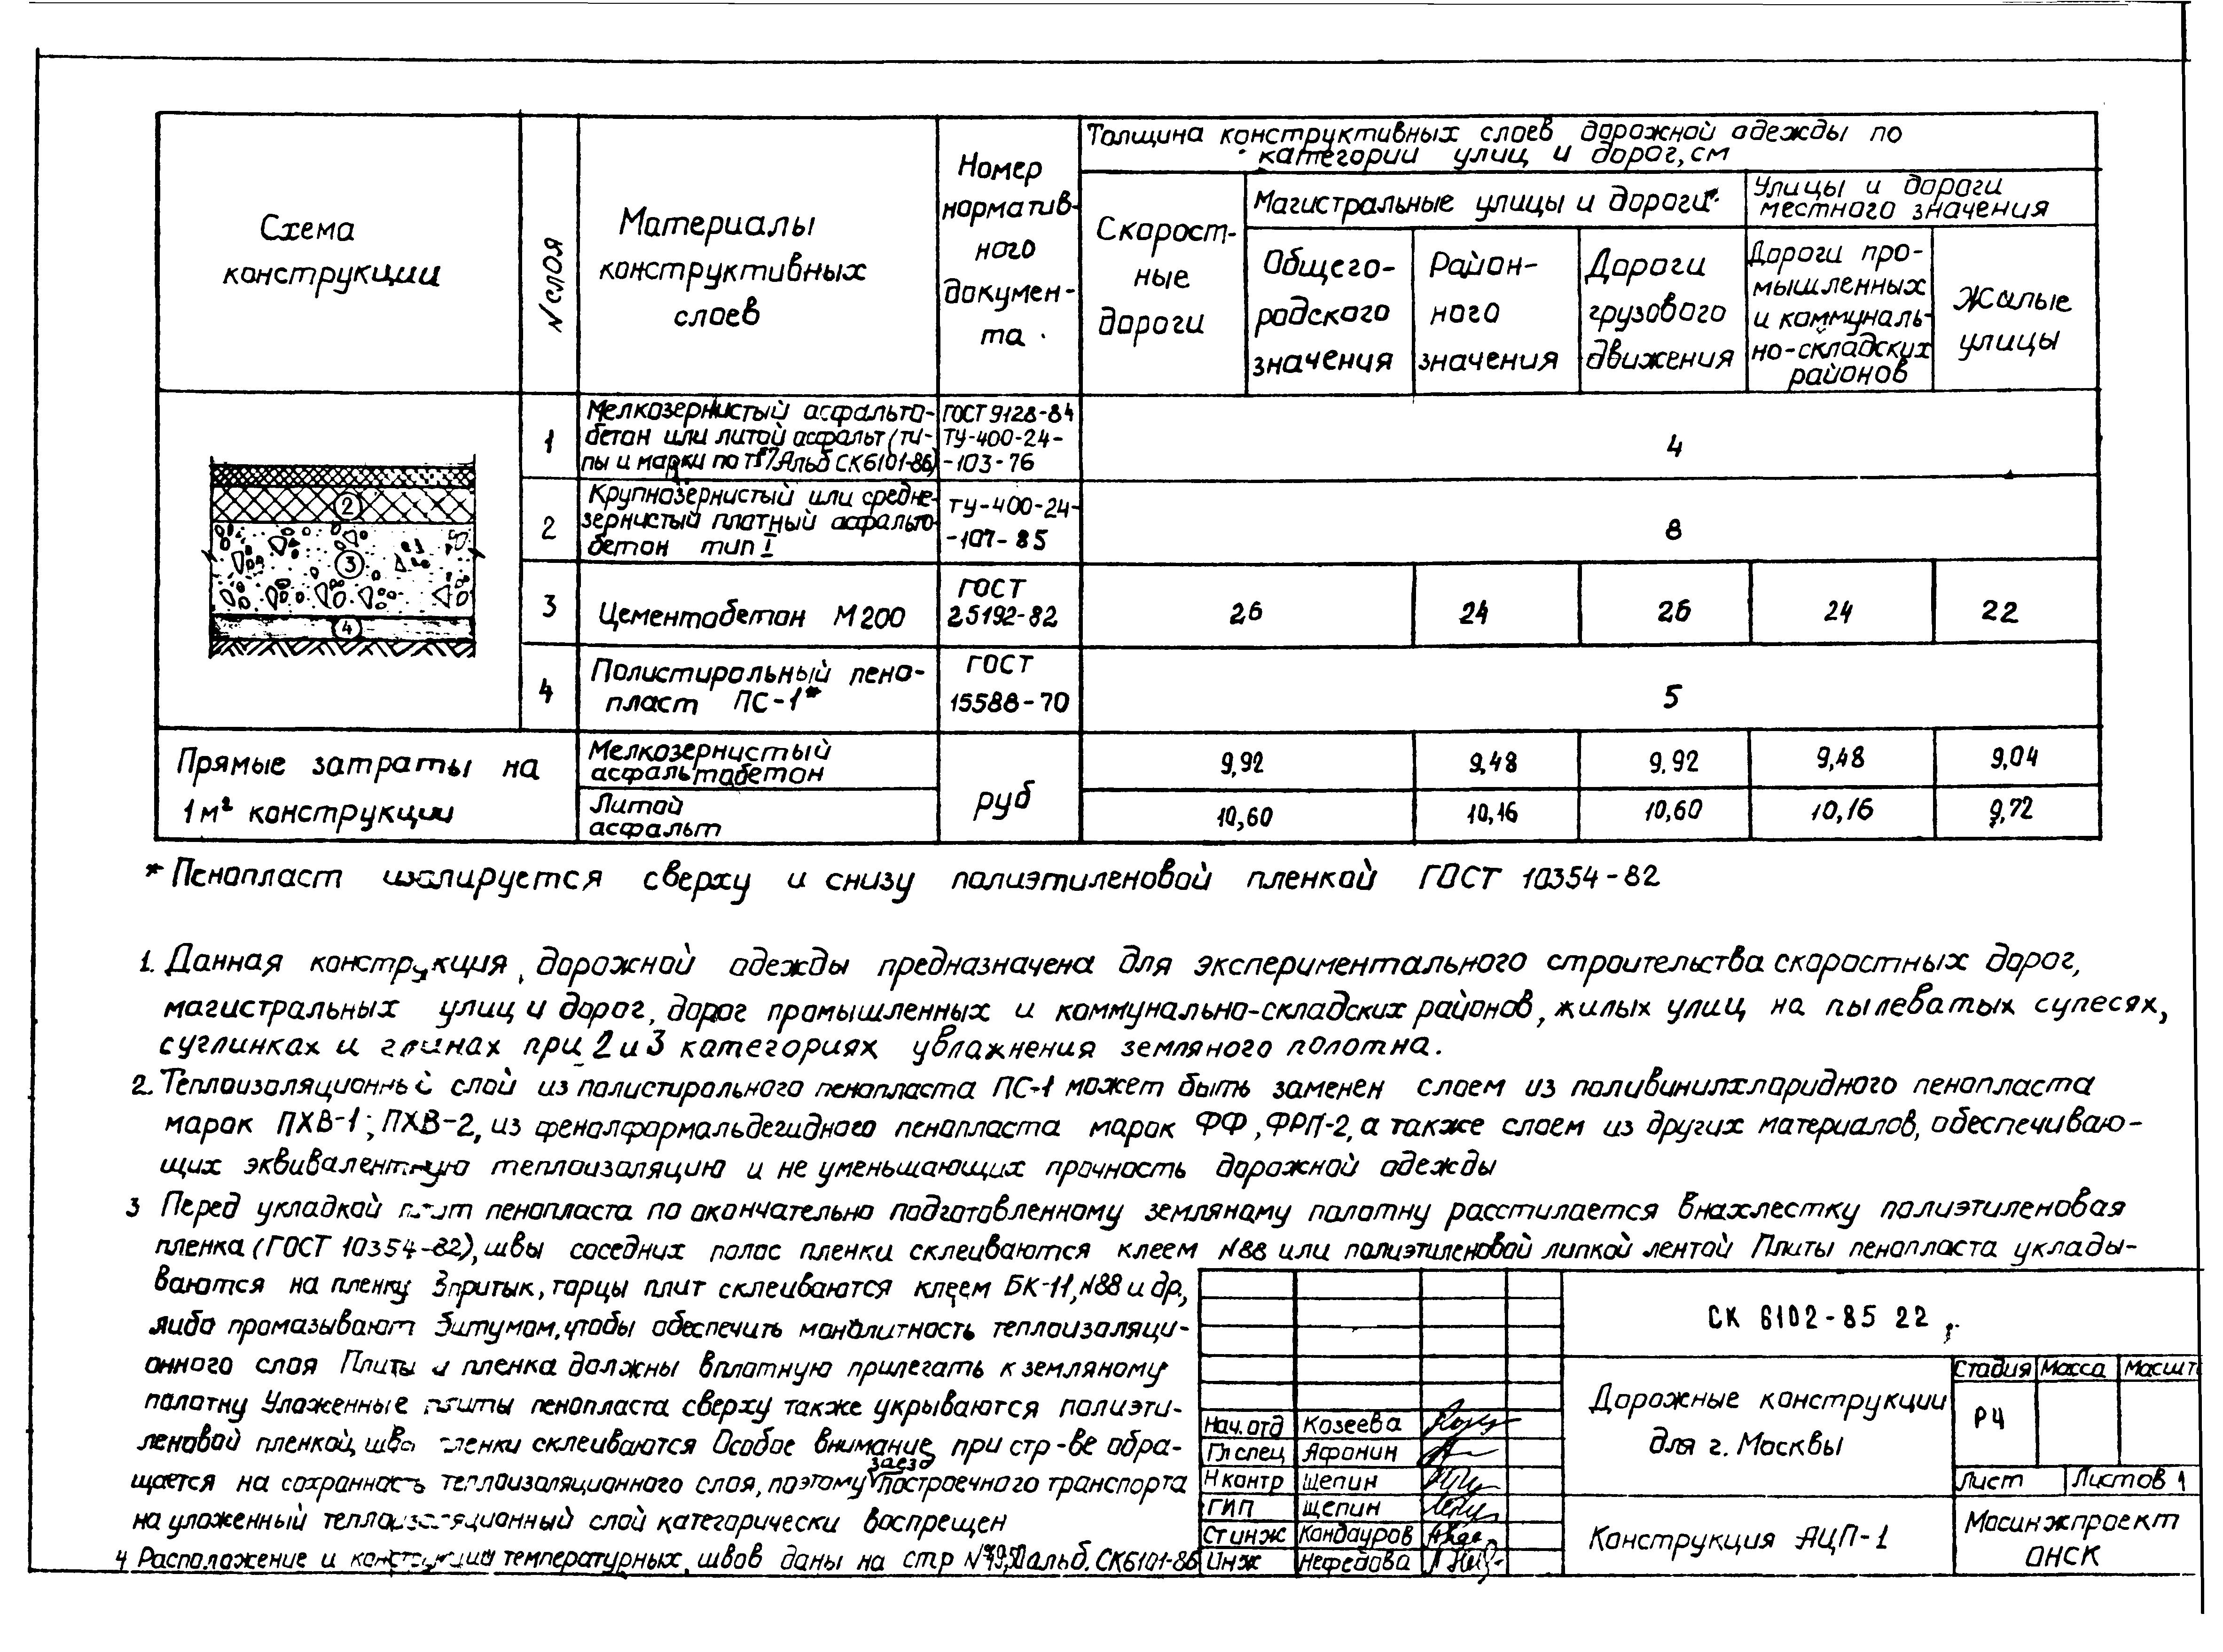 Схема
конструкции
N слоя
Материалы
конструктивных
слоев
Номер
норматив-
ного
докумен-
та
Толщина конструктивных слоев дорожной одежды по
категории улиц и дорог, см
Скорост-
ные
дороги
Магистральные улицы и дороги
Общего-
родского
значения
Район-
ного
значения
Дороги
грузового
движения
Улицы и дороги
местного значения
Дороги про-
мышленных
и коммуналь-
но-складских
районов
Жилые
улицы
1
Мелкозернистый асфальто-
бетон или литой асфальт (ти-
пы и марки по Альб СК6101-86)
ГОСТ 9128-84
ТУ-400-24-
-103-76
4
2
Крупнозернистый или средне-
зернистый плотный асфальто-
бетон тип I
ТУ-400-24-
-107-85
8
3
Цементобетон М200
ГОСТ
25192-82
26
24
26
24
22
4
Полистирольный пено-
пласт ПС-1*
ГОСТ
15588-70
5
2
3
4
Прямые затраты на
1 м² конструкции
Мелкозернистый
асфальтобетон
руб
9,92
9,48
9.92
9,48
9,04
Литой
асфальт
10,60
10,16
10,60
10,16
9,72
* Пенопласт изолируется сверху и снизу полиэтиленовой пленкой ГОСТ 10354-82
1. Данная конструкция дорожной одежды предназначена для экспериментального строительства скоростных дорог,
магистральных улиц и дорог, дорог промышленных и коммунально-складских районов, жилых улиц на пылеватых супесях,
суглинках и глинах при 2 и 3 категориях увлажнения земляного полотна.
2. Теплоизоляционный слой из полистирольного пенопласта ПС-1 может быть заменен слоем из поливинилхлоридного пенопласта
марок ПХВ-1; ПХВ-2, из фенолформальдегидного пенопласта марок ФФ, ФРП-2, а также слоем из других материалов, обеспечиваю-
щих эквивалентную теплоизоляцию и не уменьшающих прочность дорожной одежды
3 Перед укладкой плит пенопласта по окончательно подготовленному земляному полотну расстилается внахлестку полиэтиленовая
пленка (ГОСТ 10354-82), швы соседних полос пленки склеиваются клеем N88 или полиэтиленовой липкой лентой Плиты пенопласта уклады-
ваются на пленку впритык, торцы плит склеиваются клеем БК-11, N88 и др.,
либо промазывают битумом, чтобы обеспечить монолитность теплоизоляци-
онного слоя Плиты и пленка должны вплотную прилегать к земляному
полотну Уложенные плиты пенопласта сверху также укрываются полиэти-
леновой пленкой, швы пленки склеиваются Особое внимание при стр-ве обра-
щается на сохранность теплоизоляционного слоя, поэтому заезд построечного транспорта
на уложенный теплоизоляционный слой категорически воспрещен
4 Расположение и конструкции температурных швов даны на стр альб. СК6101-86
СК 6102-85 22
Дорожные конструкции
для г. Москвы
Стадия
Масса
Масшт
РЧ
Лист
Листов 1
Конструкция АЦП-1
Мосинжпроект
ОНСК
Нач. отд Козеева
Гл спец Афонин
Н контр Щепин
ГИП Щепин
Ст инж Кондауров
Инж Нефедова